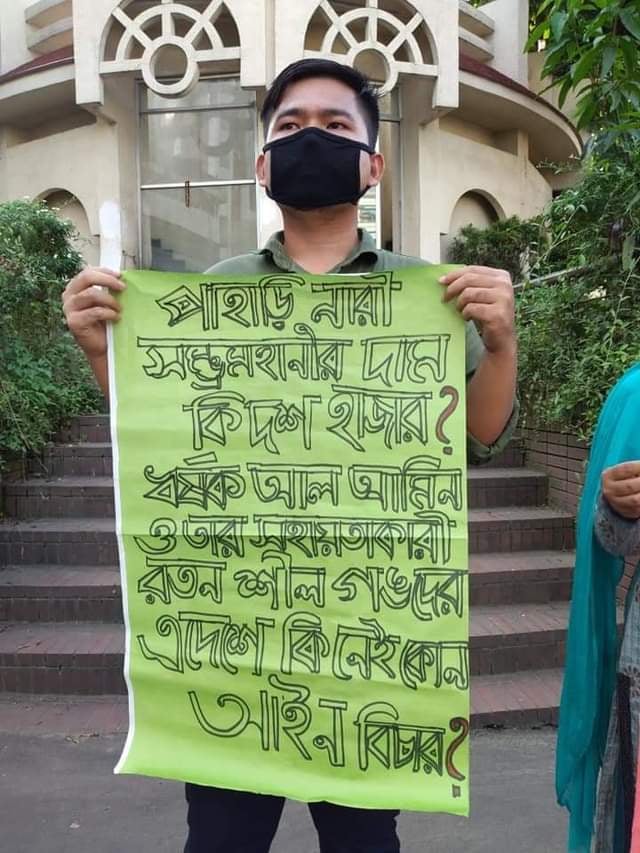 পাহাড়ি নারী
সম্ভ্রমহানীর দাম
কি দশ হাজার?
ধর্ষক আল আমিন
ও তার সহায়তাকারী
রতন শীল গঙদের
এদেশে কি নেই কোন
আইন বিচার?